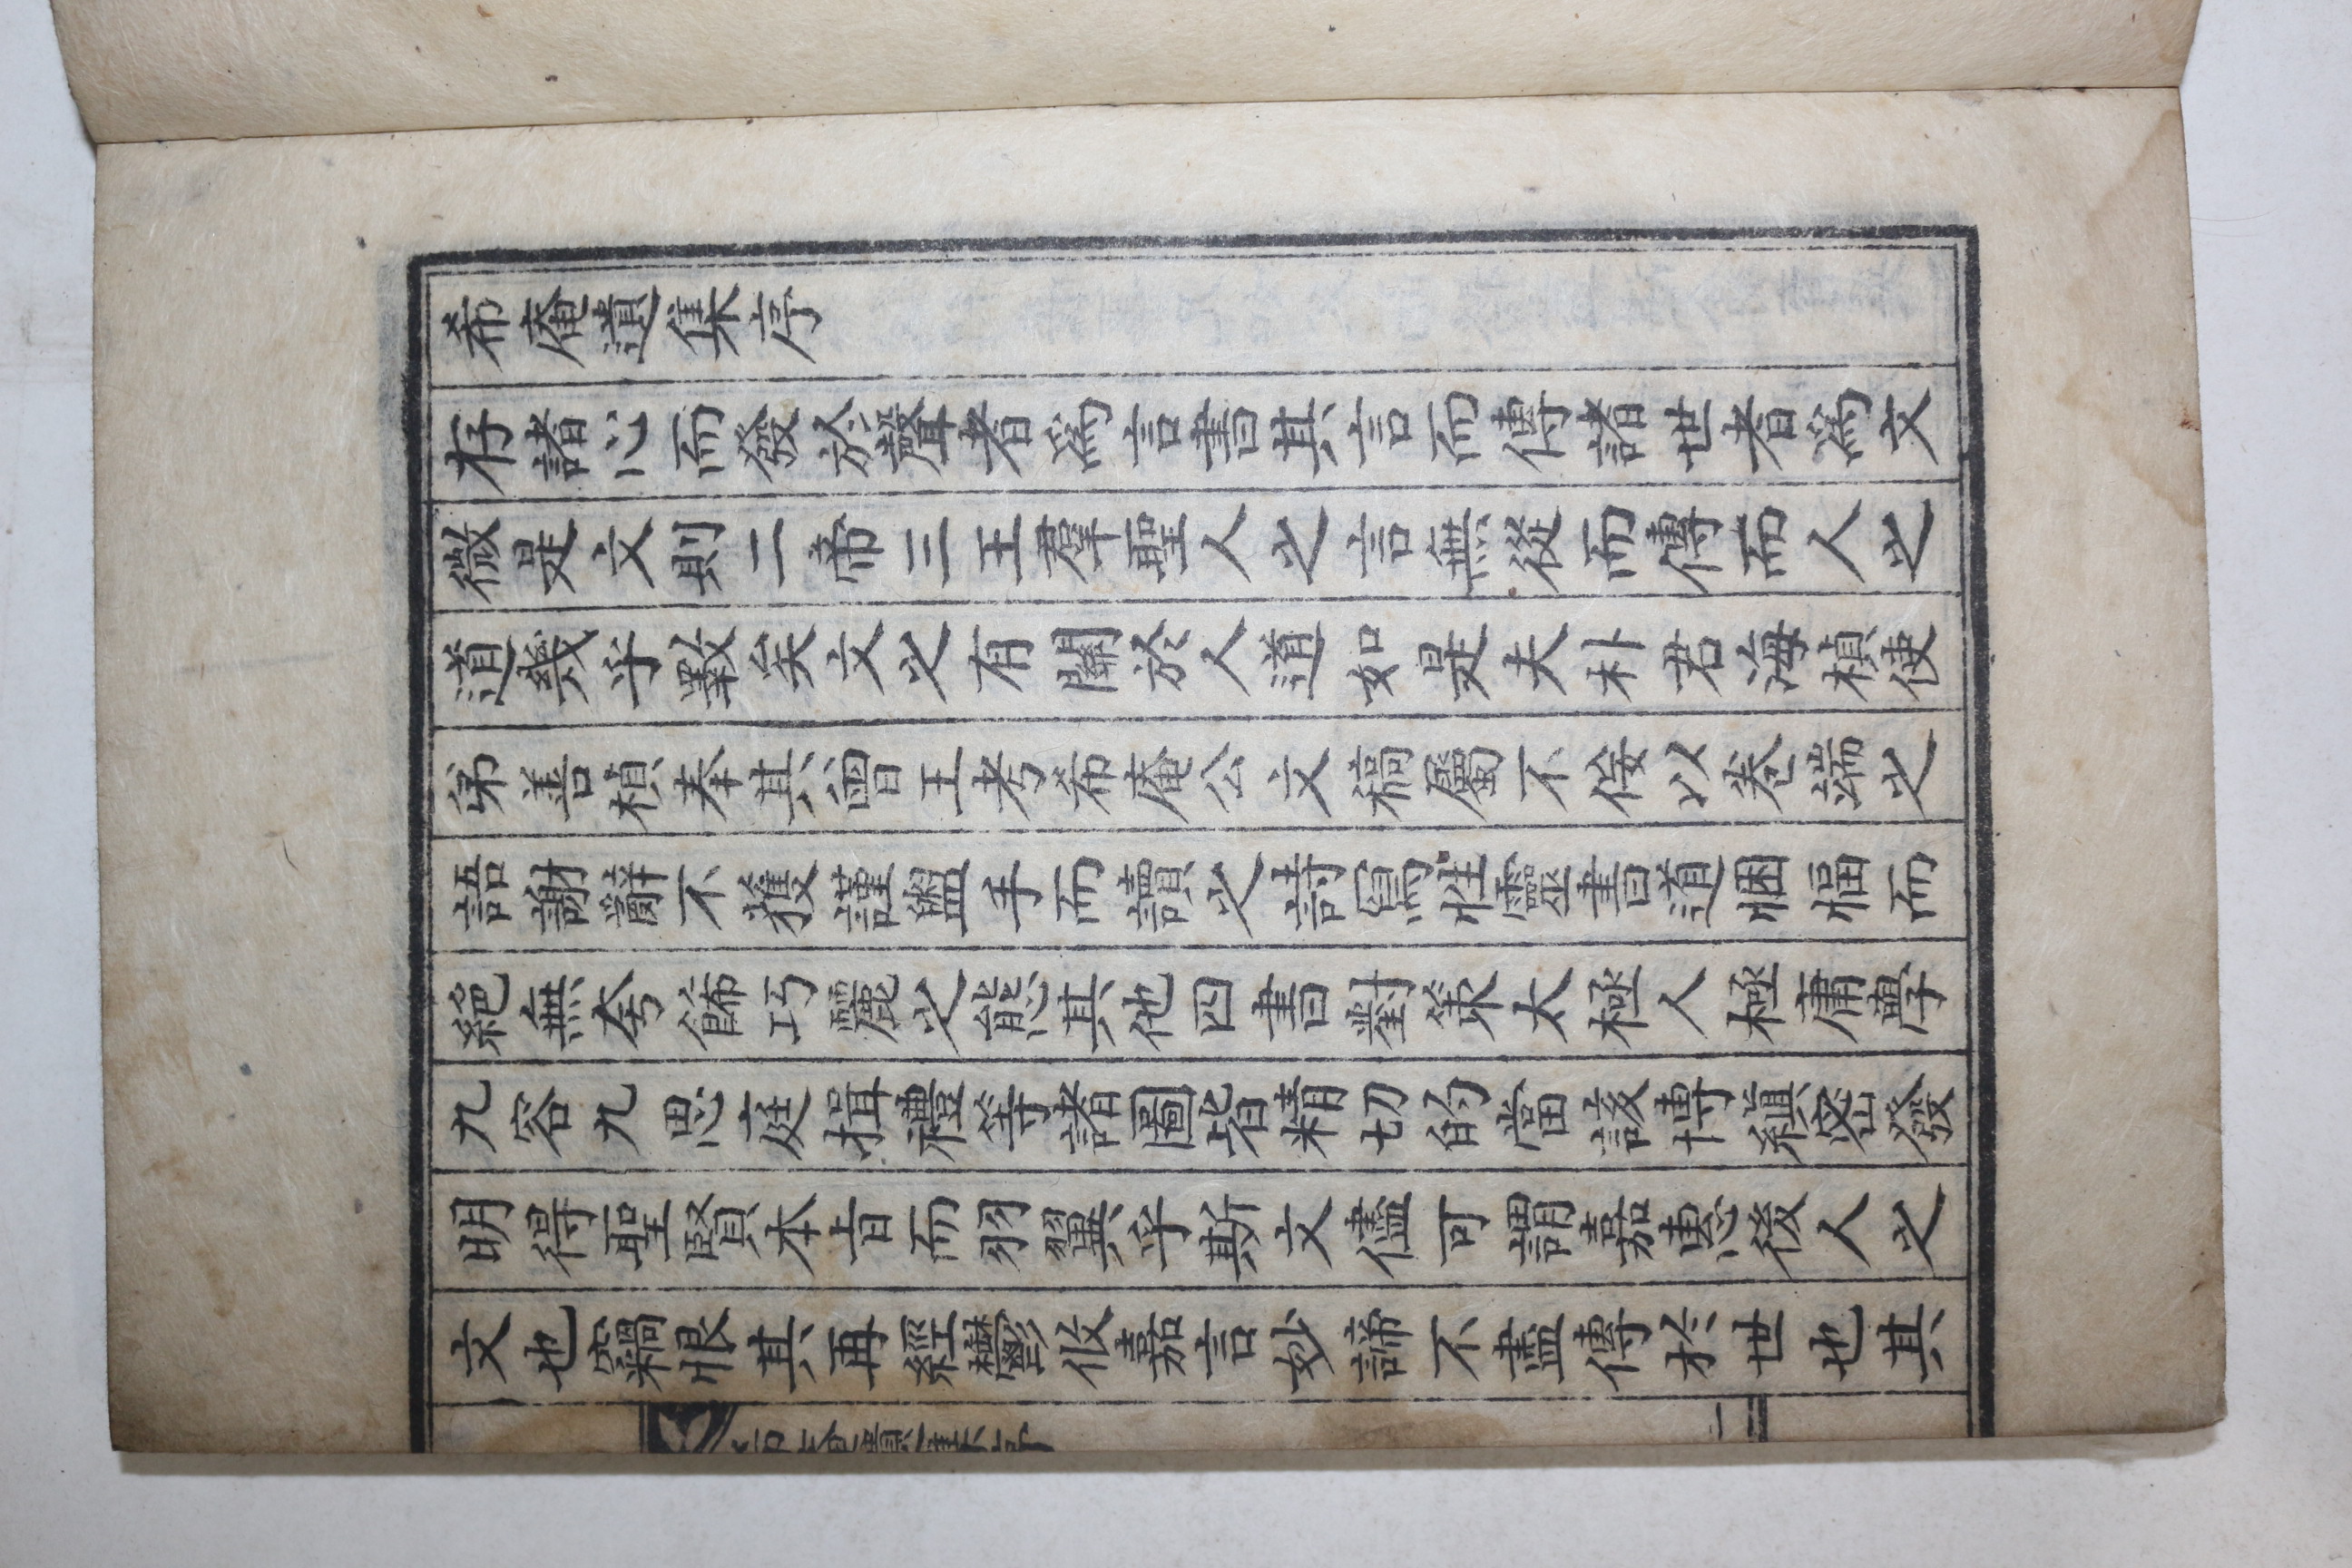 希庵遺集序
存諸心而發於聲者爲言書其言而傳諸世者爲文
微是文則二帝三王羣聖人之言無從而傳而人之
道幾乎斁矣文之有關於人道如是夫朴君海楨使
弟善楨奉其曾王考希庵公文稿屬不佞以卷端之
語謝辭不獲謹盥手而讀之詩寫性靈書道悃愊而
絕無夸餙巧麗之態其他四書對策太極人極庸學
九容九思庭揖禮等諸圖皆精切的當該博縝密發
明得聖賢本旨而羽翼乎斯文儘可謂嘉惠後人之
文也竊恨其再經鬱攸嘉言妙諦不盡傳於世也其
希庵遺集序 一